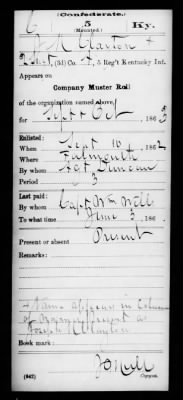 C
(Confederate.)
5
(Mounted.)
Ky.
J. M. Clayton +
Pvt, (3d) Co. F, 5 Reg't Kentucky Inf.
Appears on
Company Muster Roll
of the organization named above,
for Sept & Oct, 1863
Enlisted:
When Sept 10, 1862
Where Falmouth
By whom
Period 3
Last paid:
By whom Capt Wm Will
To what time June 3, 186
Present or absent Present
Remarks:
+ Name appears in Column
of Names Present as
Joseph Clayton
Book mark:
(642)
Copyist.